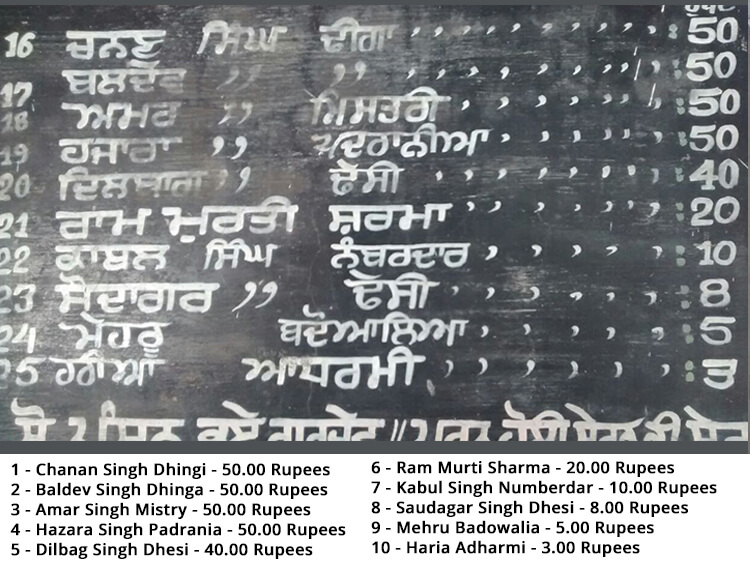 16 ਚਨਣ ਸਿੰਘ ਢੀਂਗਾ ,, ,, ,, ,, : 50
17 ਬਲਦੇਵ ,, ,, ,, ,, ,, : 50
18 ਅਮਰ ,, ਮਿਸਤਰੀ ,, ,, ,, : 50
19 ਹਜਾਰਾ ,, ਪਦਰਾਨੀਆ , , , , , : 50
20 ਦਿਲਬਾਗ ,, ਢੇਸੀ , , , , , : 40
21 ਰਾਮ ਮੂਰਤੀ ਸ਼ਰਮਾ , , , , , : 20
22 ਕਾਬਲ ਸਿੰਘ ਨੰਬਰਦਾਰ , , , , , : 10
23 ਸੌਦਾਗਰ ,, ਢੇਸੀ , , , , , : 8
24 ਮੇਹਰੂ ਬਦੋਆਲਿਆ , , , , , : 5
25 ਹਰੀਆ ਆਧਰਮੀ , , , , , : 3
1 - Chanan Singh Dhingi - 50.00 Rupees
2 - Baldev Singh Dhinga - 50.00 Rupees
3 - Amar Singh Mistry - 50.00 Rupees
4 - Hazara Singh Padrania - 50.00 Rupees
5 - Dilbag Singh Dhesi - 40.00 Rupees
6 - Ram Murti Sharma - 20.00 Rupees
7 - Kabul Singh Numberdar - 10.00 Rupees
8 - Saudagar Singh Dhesi - 8.00 Rupees
9 - Mehru Badowalia - 5.00 Rupees
10 - Haria Adharmi - 3.00 Rupees